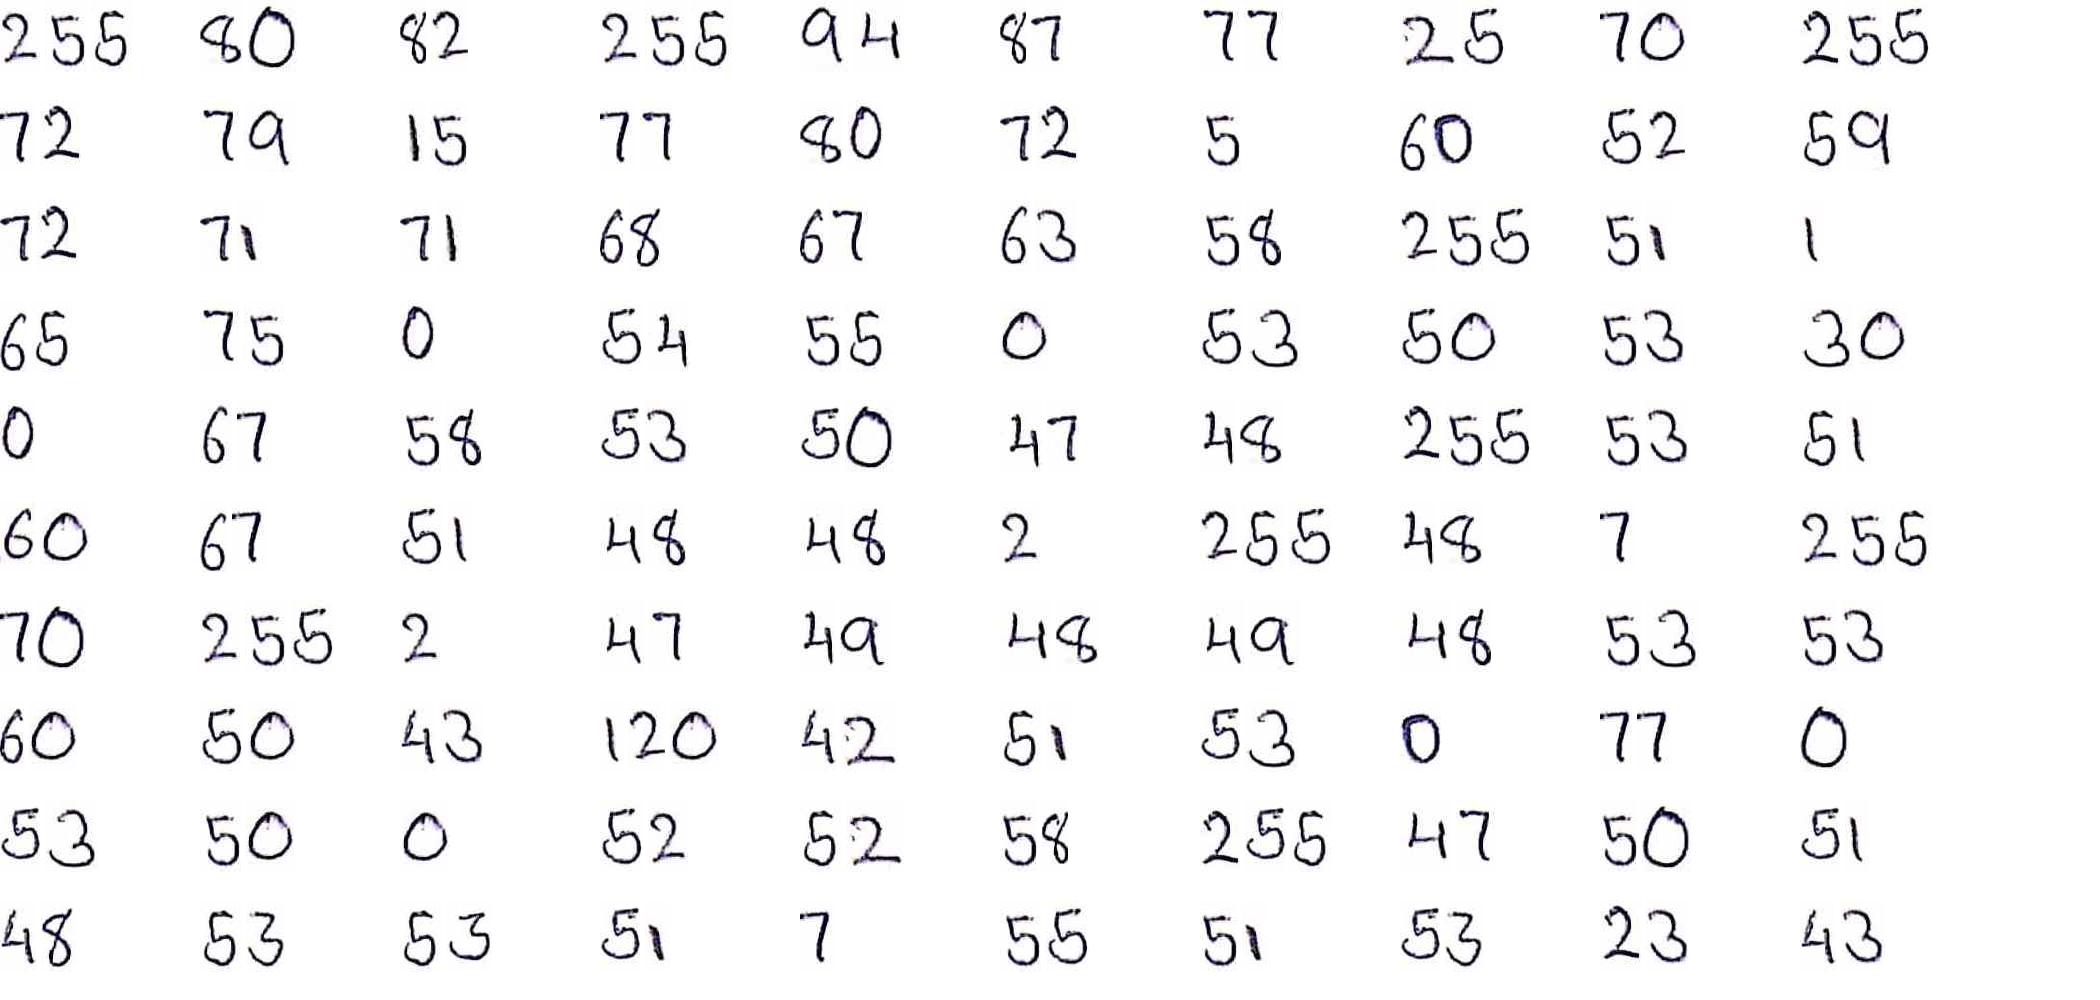 255 80 82 255 94 87 77 25 70 255
72 79 15 77 80 72 5 60 52 59
72 71 71 68 67 63 58 255 51 1
65 75 0 54 55 0 53 50 53 30
0 67 58 53 50 47 48 255 53 51
60 67 51 48 48 2 255 48 7 255
70 255 2 47 49 48 49 48 53 53
60 50 43 120 42 51 53 0 77 0
53 50 0 52 52 58 255 47 50 51
48 53 53 51 7 55 51 53 23 43